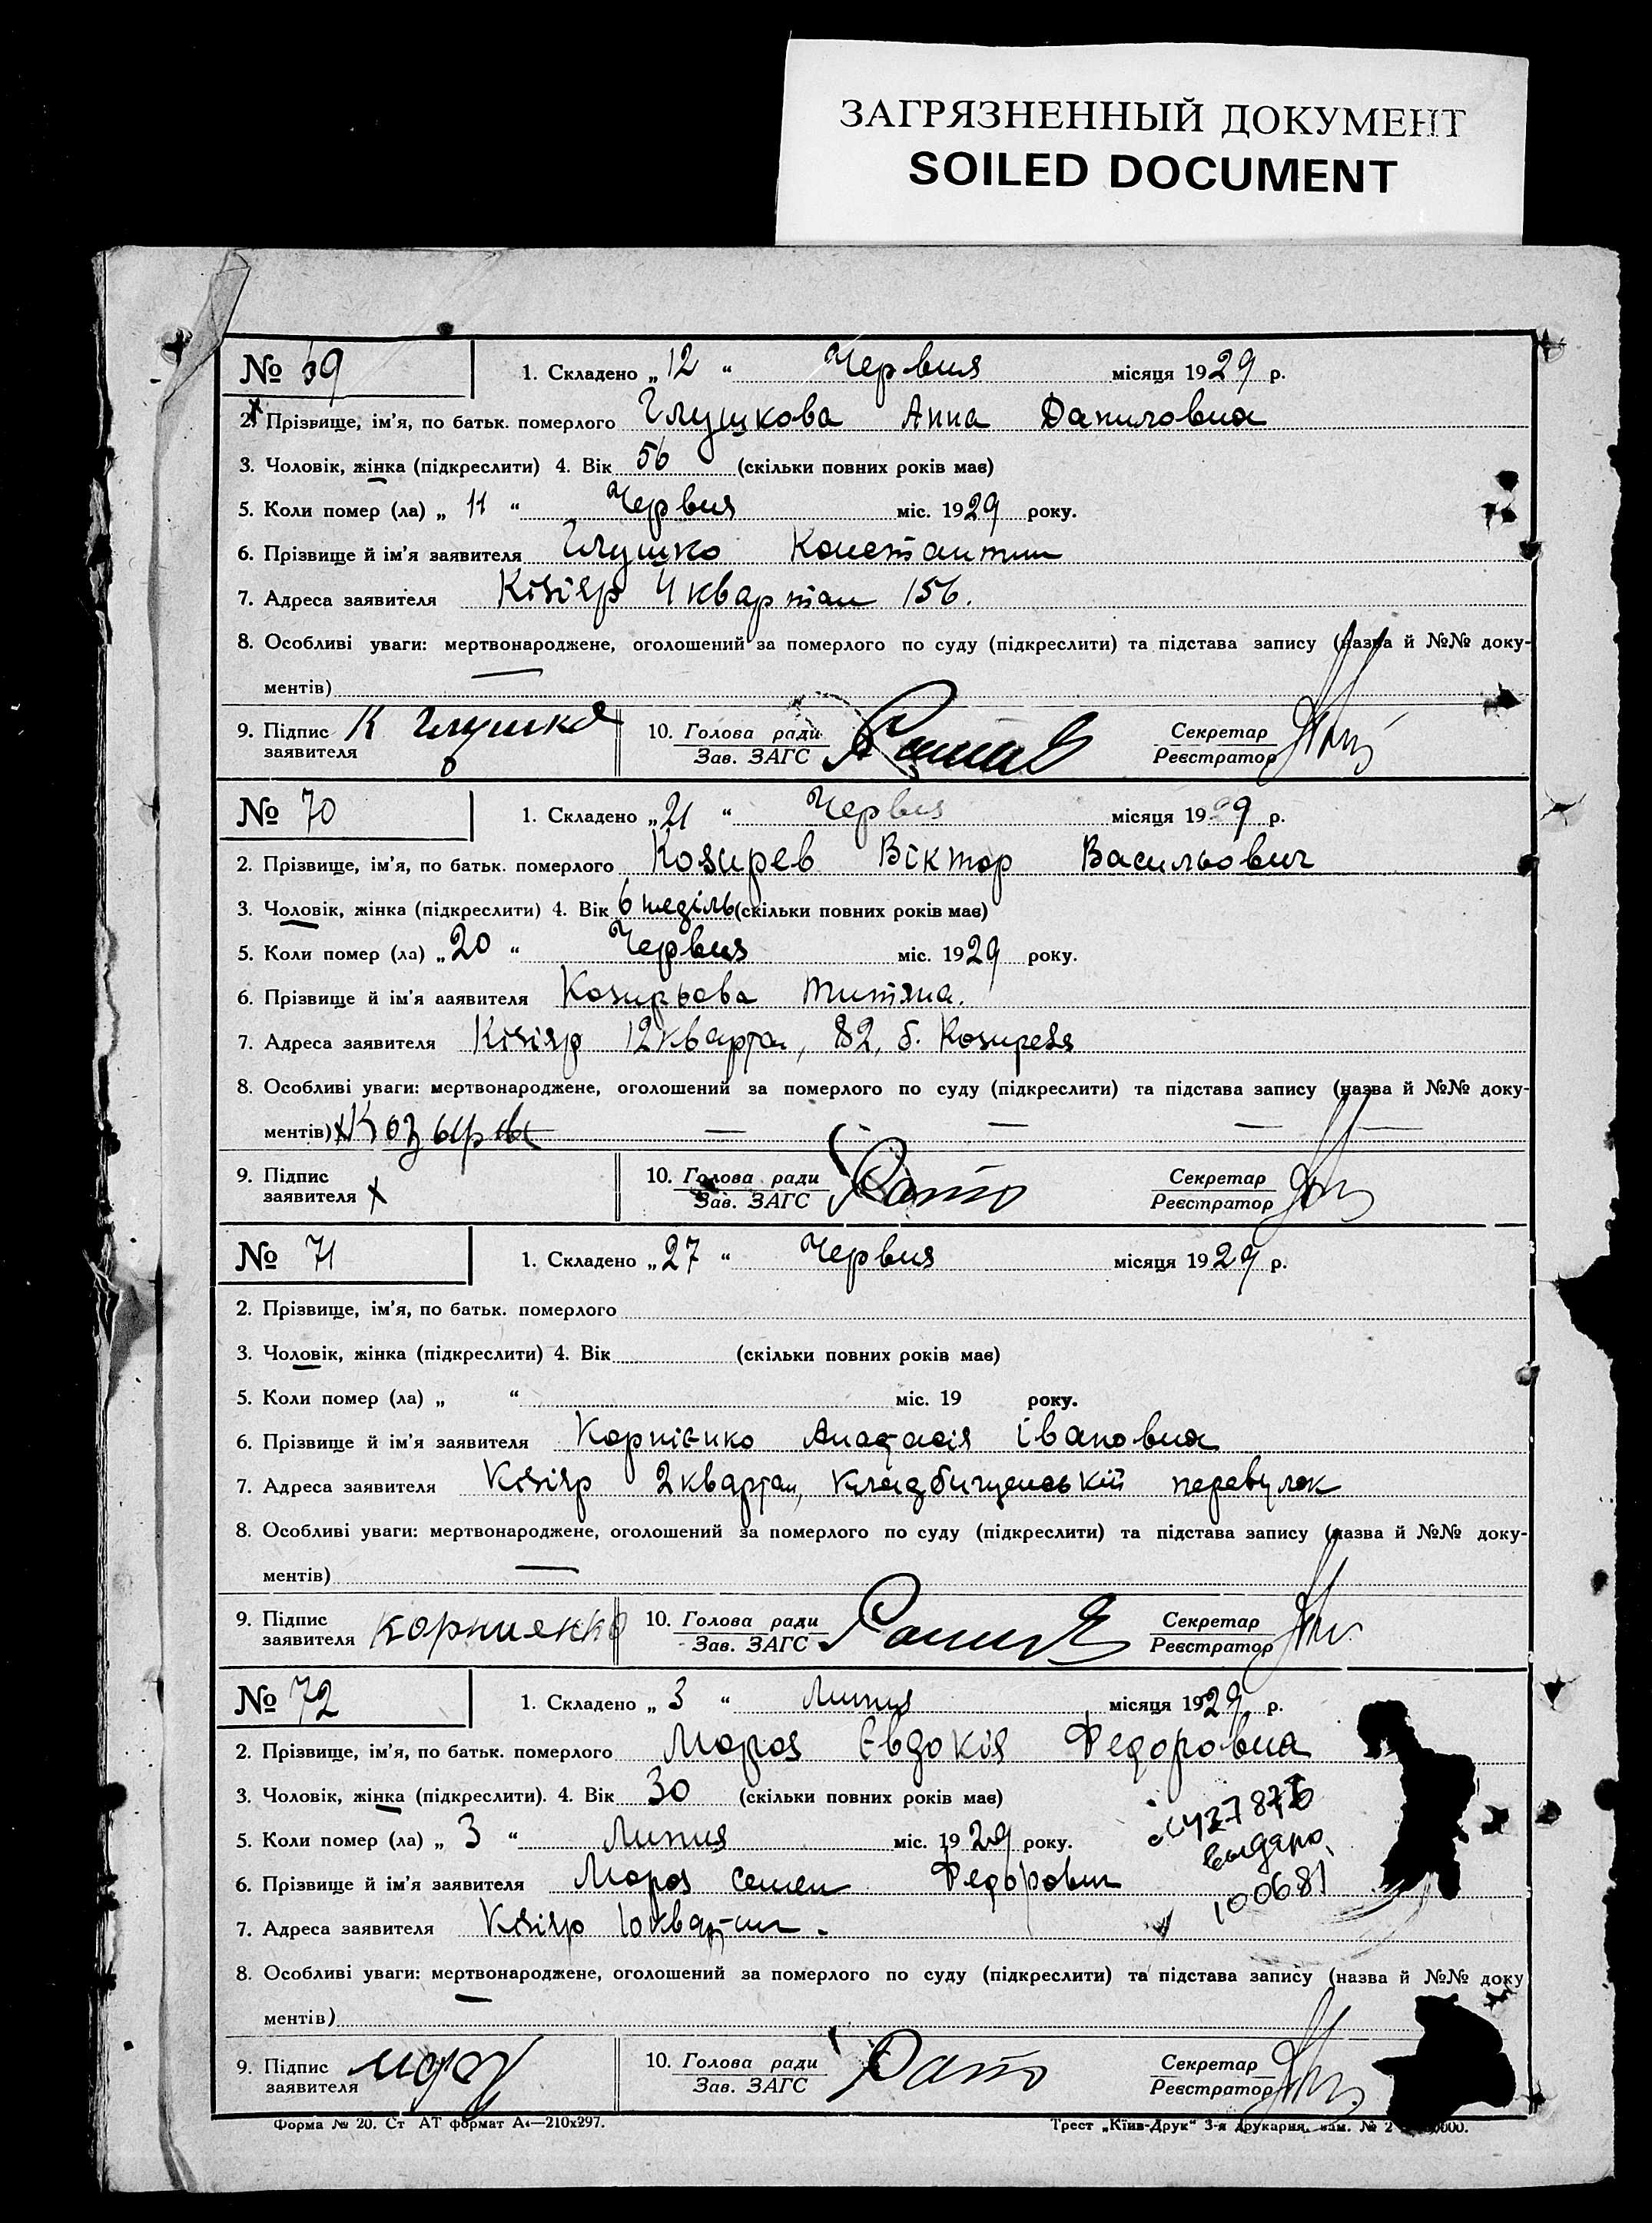 ЗАГРЯЗНЕННЫЙ ДОКУМЕНТ
SOILED DOCUMENT
№ 69 1. Складено „12“ Червня місяця 1929 р.
2. Прізвище, ім’я, по батьк. померлого Глушкова Анна Даниловна
3. Чоловік, жінка (підкреслити) 4. Вік 56 (скільки повних років має)
5. Коли помер (ла) „11“ Червня міс. 1929 року.
6. Прізвище й ім’я заявителя Глушко Константин
7. Адреса заявителя Кізіяр 4 квартал 156.
8. Особливі уваги: мертвонароджене, оголошений за померлого по суду (підкреслити) та підстава запису (назва й №№ доку-
ментів)
9. Підпис заявителя К Глушко 10. Голова ради Зав. ЗАГС Секретар Реєстратор
№ 70 1. Складено „21“ Червня місяця 1929 р.
2. Прізвище, ім’я, по батьк. померлого Козирев Віктор Васильович
3. Чоловік, жінка (підкреслити) 4. Вік 6 неділь (скільки повних років має)
5. Коли помер (ла) „20“ Червня міс. 1929 року.
6. Прізвище й ім’я заявителя Козирьова
7. Адреса заявителя Кізіяр 12 квартал, 82, б. Козирева
8. Особливі уваги: мертвонароджене, оголошений за померлого по суду (підкреслити) та підстава запису (назва й №№ доку-
ментів) х
9. Підпис заявителя х 10. Голова ради Зав. ЗАГС Секретар Реєстратор
№ 71 1. Складено „27“ Червня місяця 1929 р.
2. Прізвище, ім’я, по батьк. померлого
3. Чоловік, жінка (підкреслити) 4. Вік (скільки повних років має)
5. Коли помер (ла) „ “ міс. 19 року.
6. Прізвище й ім’я заявителя Корнієнко Анастасія Івановна
7. Адреса заявителя Кізіяр 2 квартал, Кладбищенській перевулок
8. Особливі уваги: мертвонароджене, оголошений за померлого по суду (підкреслити) та підстава запису (назва й №№ доку-
ментів)
9. Підпис заявителя Корниенко 10. Голова ради Зав. ЗАГС Секретар Реєстратор
№ 72 1. Складено „3“ Липня місяця 1929 р.
2. Прізвище, ім’я, по батьк. померлого Мороз Євдокія Федоровна
3. Чоловік, жінка (підкреслити). 4. Вік 30 (скільки повних років має)
5. Коли помер (ла) „3“ Липня міс. 1929 року.
6. Прізвище й ім’я заявителя Мороз Семен Федорович
7. Адреса заявителя Кізіяр 10 квартал.
100681
8. Особливі уваги: мертвонароджене, оголошений за померлого по суду (підкреслити) та підстава запису (назва й №№ доку
ментів)
9. Підпис заявителя 10. Голова ради Зав. ЗАГС Секретар Реєстратор
Форма № 20. Ст АТ формат А4—210х297. Трест „Київ-Друк“ 3-я друкарня, зам. № 2